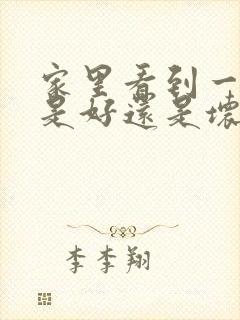 家里看到一
是好还是坏
李李翔